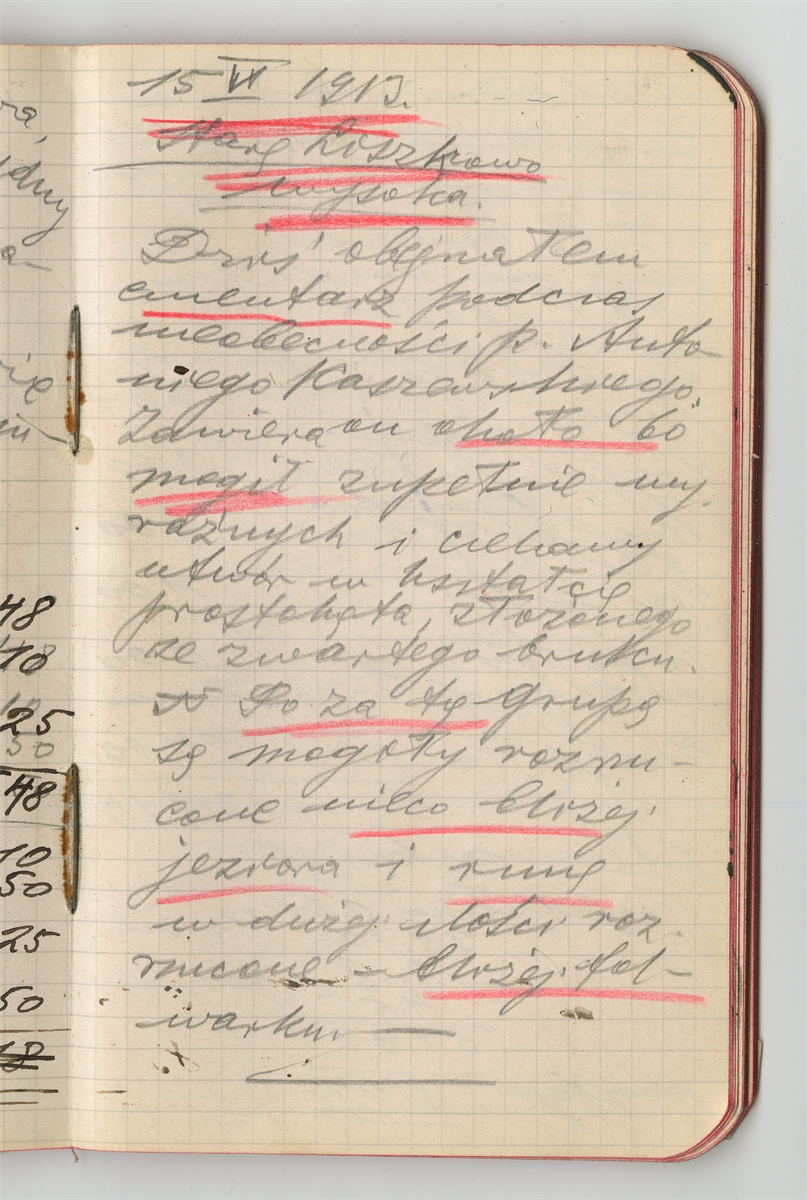 15 VI 1913.
Starę Koszkowo
wysoka.
Dziś obejrzałem
cmentarz podczas
nieobecności p. Anto
niego Kaszewskiego.
Zawiera on około 60
mogił zupełnie wy
raźnych i ciekawy
utwór w kształcie
prostokąta, złożonego
ze zwartego bruku.
Po za tę grupę
są mogiły rozrzu-
cone nieco bliżej
jeziora i inne
w dużej ilości roz
rzucone – bliżej fol-
warku. —
48
25
50
48
10
50
25
50